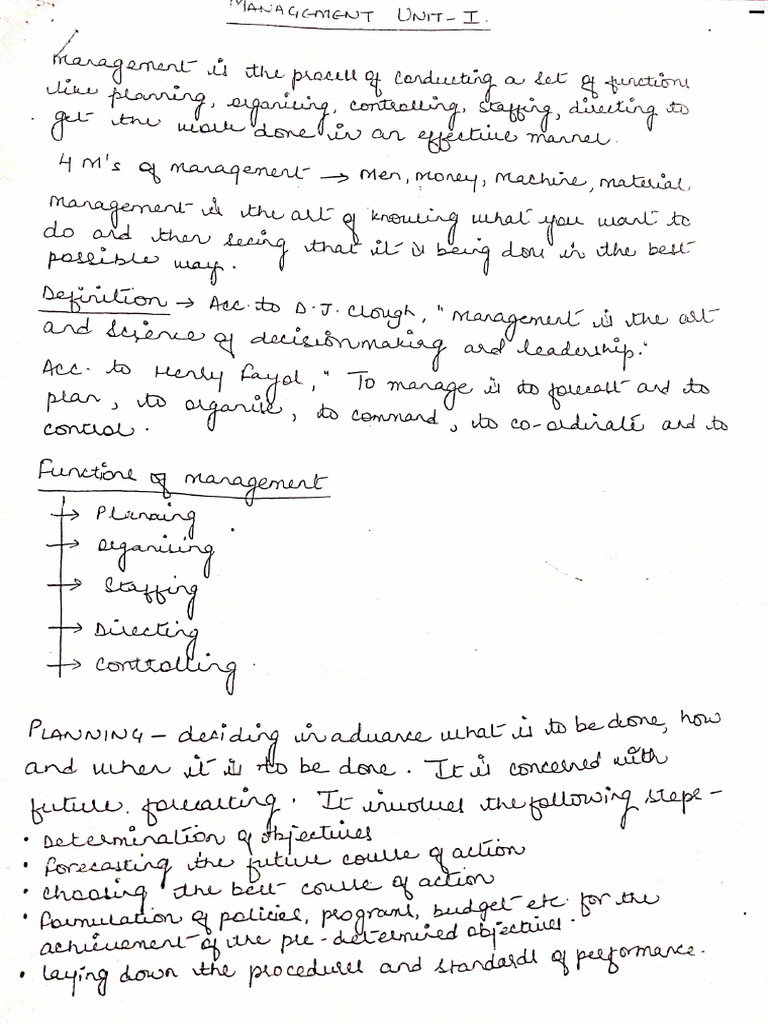 MANAGEMENT UNIT-I.
Management is the process of conducting a set of functions
like planning, organising, controlling, staffing, directing to
get the work done in an effective manner.
4 M's of management → Men, money, machine, material.
Management is the art of knowing what you want to
do and then seeing that it is being done in the best
possible way.
Definition → Acc. to D.J. Clough, "Management is the art
and science of decisionmaking and leadership."
Acc. to Henry Fayol, "To manage is to forecast and to
plan, to organise, to command, to co-ordinate and to
control.
Functions of management
→ Planning
→ Organising
→ Staffing
→ Directing
→ Controlling
PLANNING – deciding in advance what is to be done, how
and when it is to be done. It is concerned with
future forecasting. It involves the following steps –
• Determination of objectives
• forecasting the future course of action
• choosing the best course of action
• Formulation of policies, programs, budget etc. for the
achievement of the pre-determined objectives.
• laying down the procedures and standards of performance.